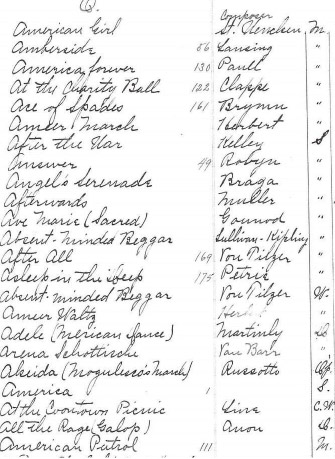 (A).
composer
American Girl St. Clenschen M.
Amberside 56 Lansing "
America forever 130 Paull "
At the Charity Ball 122 Clappe "
Ace of Spades 161 Brymn "
Ameer March Herbert "
After the War Kelley S
Answer 49 Robyn "
Angel's Serenade Braga "
Afterwards Muller "
Ave Marie (Sacred) Gounod "
Absent-minded Beggar Sullivan-Kipling "
After All 169 Von Tilzer "
Asleep in the Deep 175 Petrie "
Absent-minded Beggar Von Tilzer W.
Ameer Waltz Herbert "
Adele (Mexican Dance) Martinly D.
Arena Schottische Van Barr "
Alseida (Mogulesco's March) Russotto Op.
America 1 S.
At the Picnic C.W.
All the Rage (Galop) Anon D.
American Patrol 111 M.